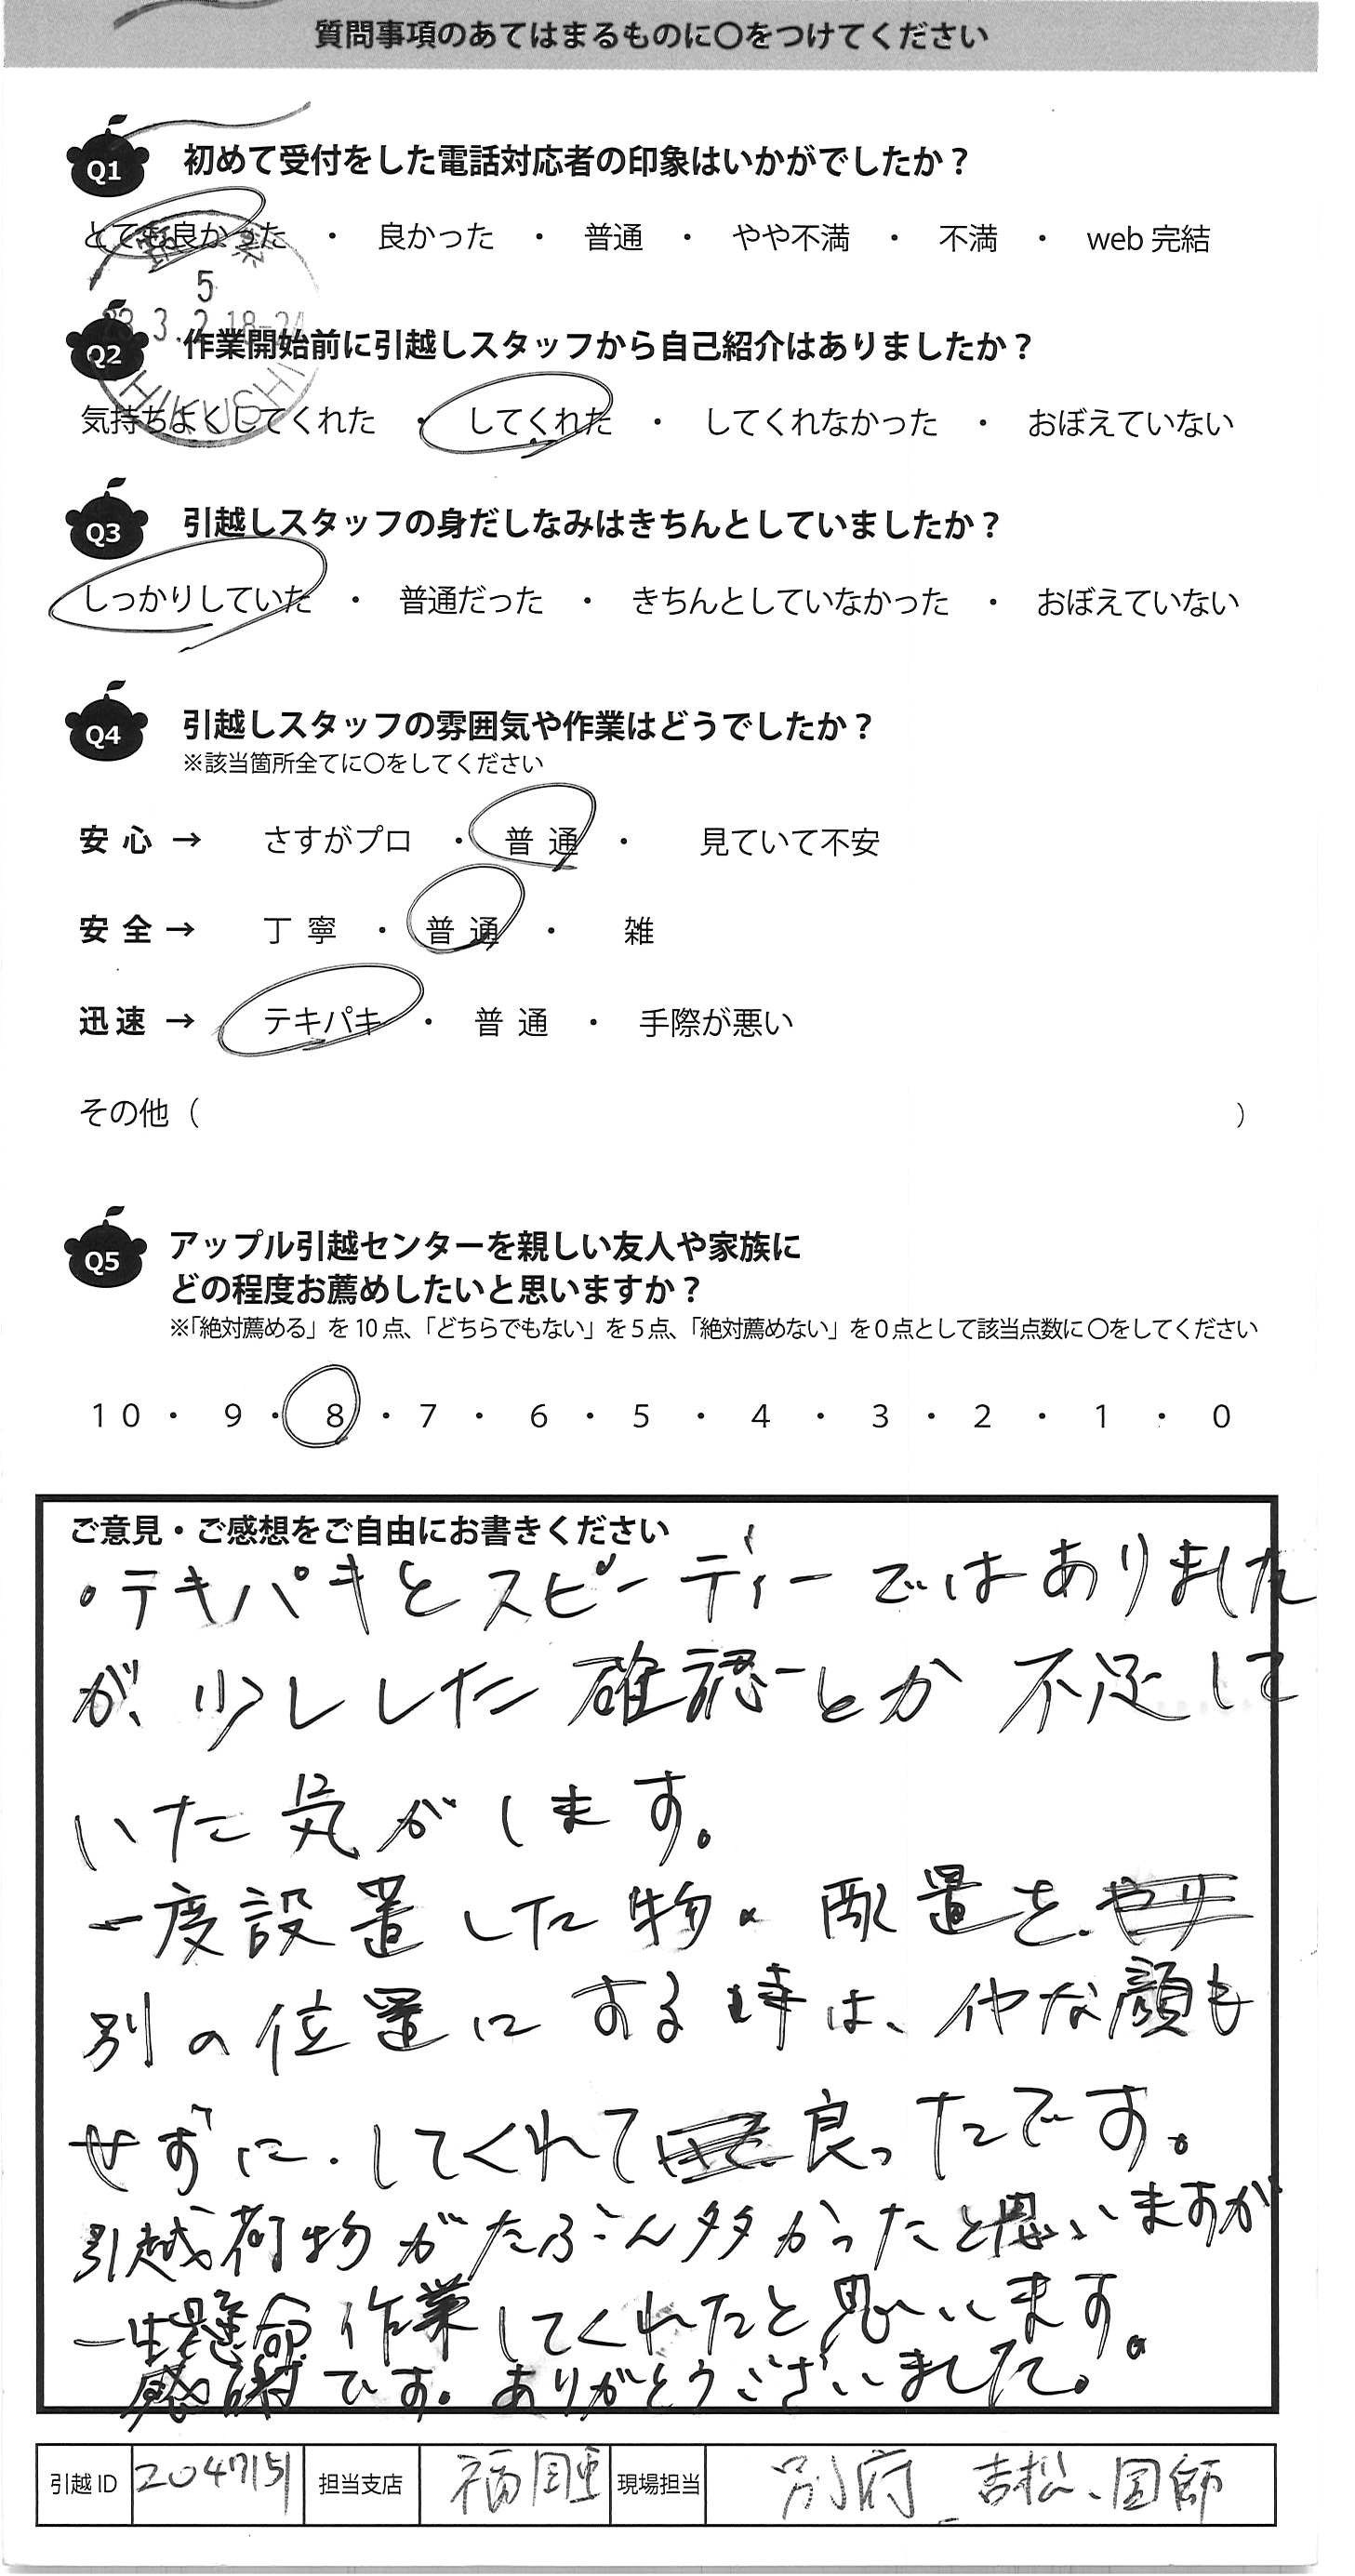 質問事項のあてはまるものに〇をつけてください
Q1 初めて受付をした電話対応者の印象はいかがでしたか？
とても良かった ・ 良かった ・ 普通 ・ やや不満 ・ 不満 ・ web 完結
5
3.2.18-24
Q2 作業開始前に引越しスタッフから自己紹介はありましたか？
気持ちよくしてくれた ・ してくれた ・ してくれなかった ・ おぼえていない
Q3 引越しスタッフの身だしなみはきちんとしていましたか？
しっかりしていた ・ 普通だった ・ きちんとしていなかった ・ おぼえていない
Q4 引越しスタッフの雰囲気や作業はどうでしたか？
※該当箇所全てに〇をしてください
安心 → さすがプロ ・ 普通 ・ 見ていて不安
安全 → 丁寧 ・ 普通 ・ 雑
迅速 → テキパキ ・ 普通 ・ 手際が悪い
その他（ ）
Q5 アップル引越センターを親しい友人や家族に
どの程度お薦めしたいと思いますか？
※「絶対薦める」を10点、「どちらでもない」を5点、「絶対薦めない」を0点として該当点数に〇をしてください
10 ・ 9 ・ 8 ・ 7 ・ 6 ・ 5 ・ 4 ・ 3 ・ 2 ・ 1 ・ 0
ご意見・ご感想をご自由にお書きください
・テキパキとスピーディーではありました
が、少しした確認とか不足して
いた気がします。
一度設置した物。配置を
別の位置にする時は、イヤな顔も
せずに、してくれて良ったです。
引越荷物がたぶん多かったと思いますが
一生懸命作業してくれたと思います。
感謝です。ありがとうございました。
引越ID 2047151 担当支店 福岡 現場担当 別府、吉松、国師